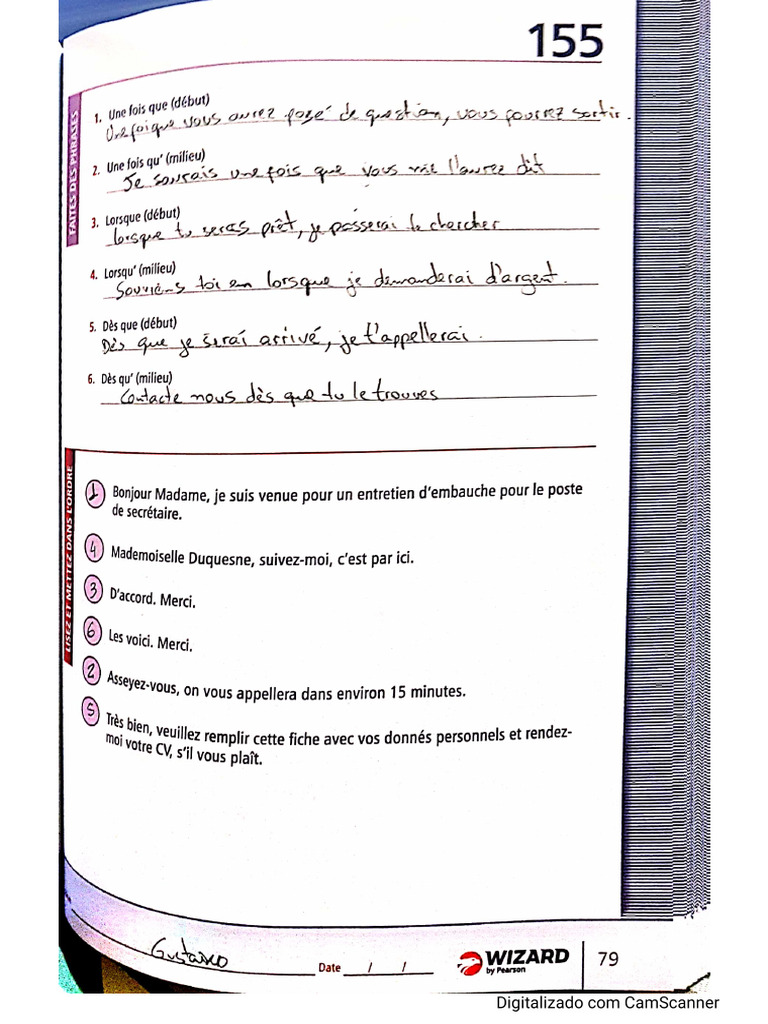 155
FAITES DES PHRASES
1. Une fois que (début)
Une foi que vous aurez posé de question, vous pourrez sortir.
2. Une fois qu' (milieu)
Je saurais une fois que vous me l'aurez dit
3. Lorsque (début)
Lorsque tu seras prêt, je passerai te chercher
4. Lorsqu' (milieu)
Souviens toi en lorsque je demanderai d'argent.
5. Dès que (début)
Dès que je serai arrivé, je t'appellerai.
6. Dès qu' (milieu)
Contacte nous dès que tu le trouves
LISEZ ET METTEZ DANS L'ORDRE
1 Bonjour Madame, je suis venue pour un entretien d'embauche pour le poste
de secrétaire.
4 Mademoiselle Duquesne, suivez-moi, c'est par ici.
3 D'accord. Merci.
6 Les voici. Merci.
2 Asseyez-vous, on vous appellera dans environ 15 minutes.
5 Très bien, veuillez remplir cette fiche avec vos donnés personnels et rendez-
moi votre CV, s'il vous plaît.
Gustavo
Date / /
WIZARD
by Pearson
79
Digitalizado com CamScanner